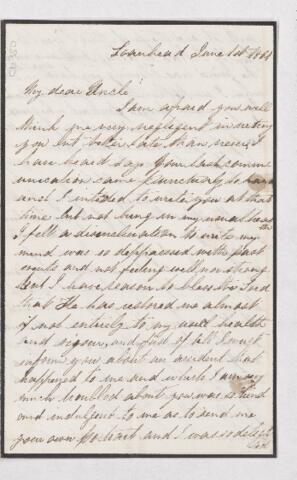 Loanhead June 1st 1861
My dear Uncle
I am afraid you will
think me very neglegent in writing
you but better late than never I
have heard say. Your last comm
unication came punctualy to hand
and I intended to write you at that
time but not being in my usual health
I felt a disenclination to write my
mind was so deppressed with past
events and not feeling well nor strong
But I have reason to bless the Lord
that He has restored me almost
if not entirely to my usual health
and vigour, and first of all I must
inform you about an accident that
happened to me and which I am very
much troubled about you was so kind
and indulgent to me as to send me
your own Portrait and I was so deligh
ted